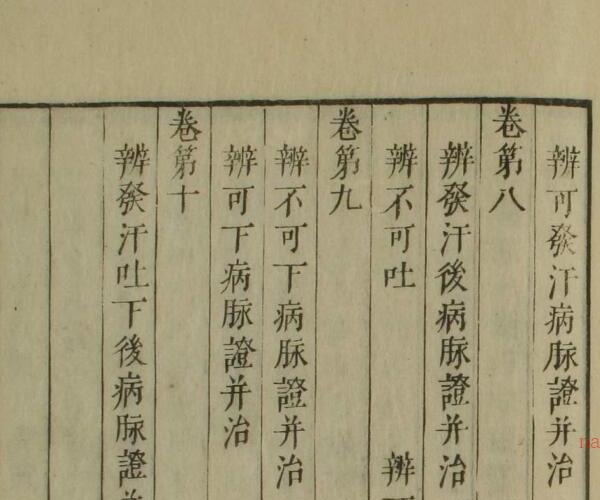 辨可發汗病脉證并治
卷第八
辨發汗後病脉證并治
辨不可吐 辨
卷第九
辨不可下病脉證并治
辨可下病脉證并治
卷第十
辨發汗吐下後病脉證
na